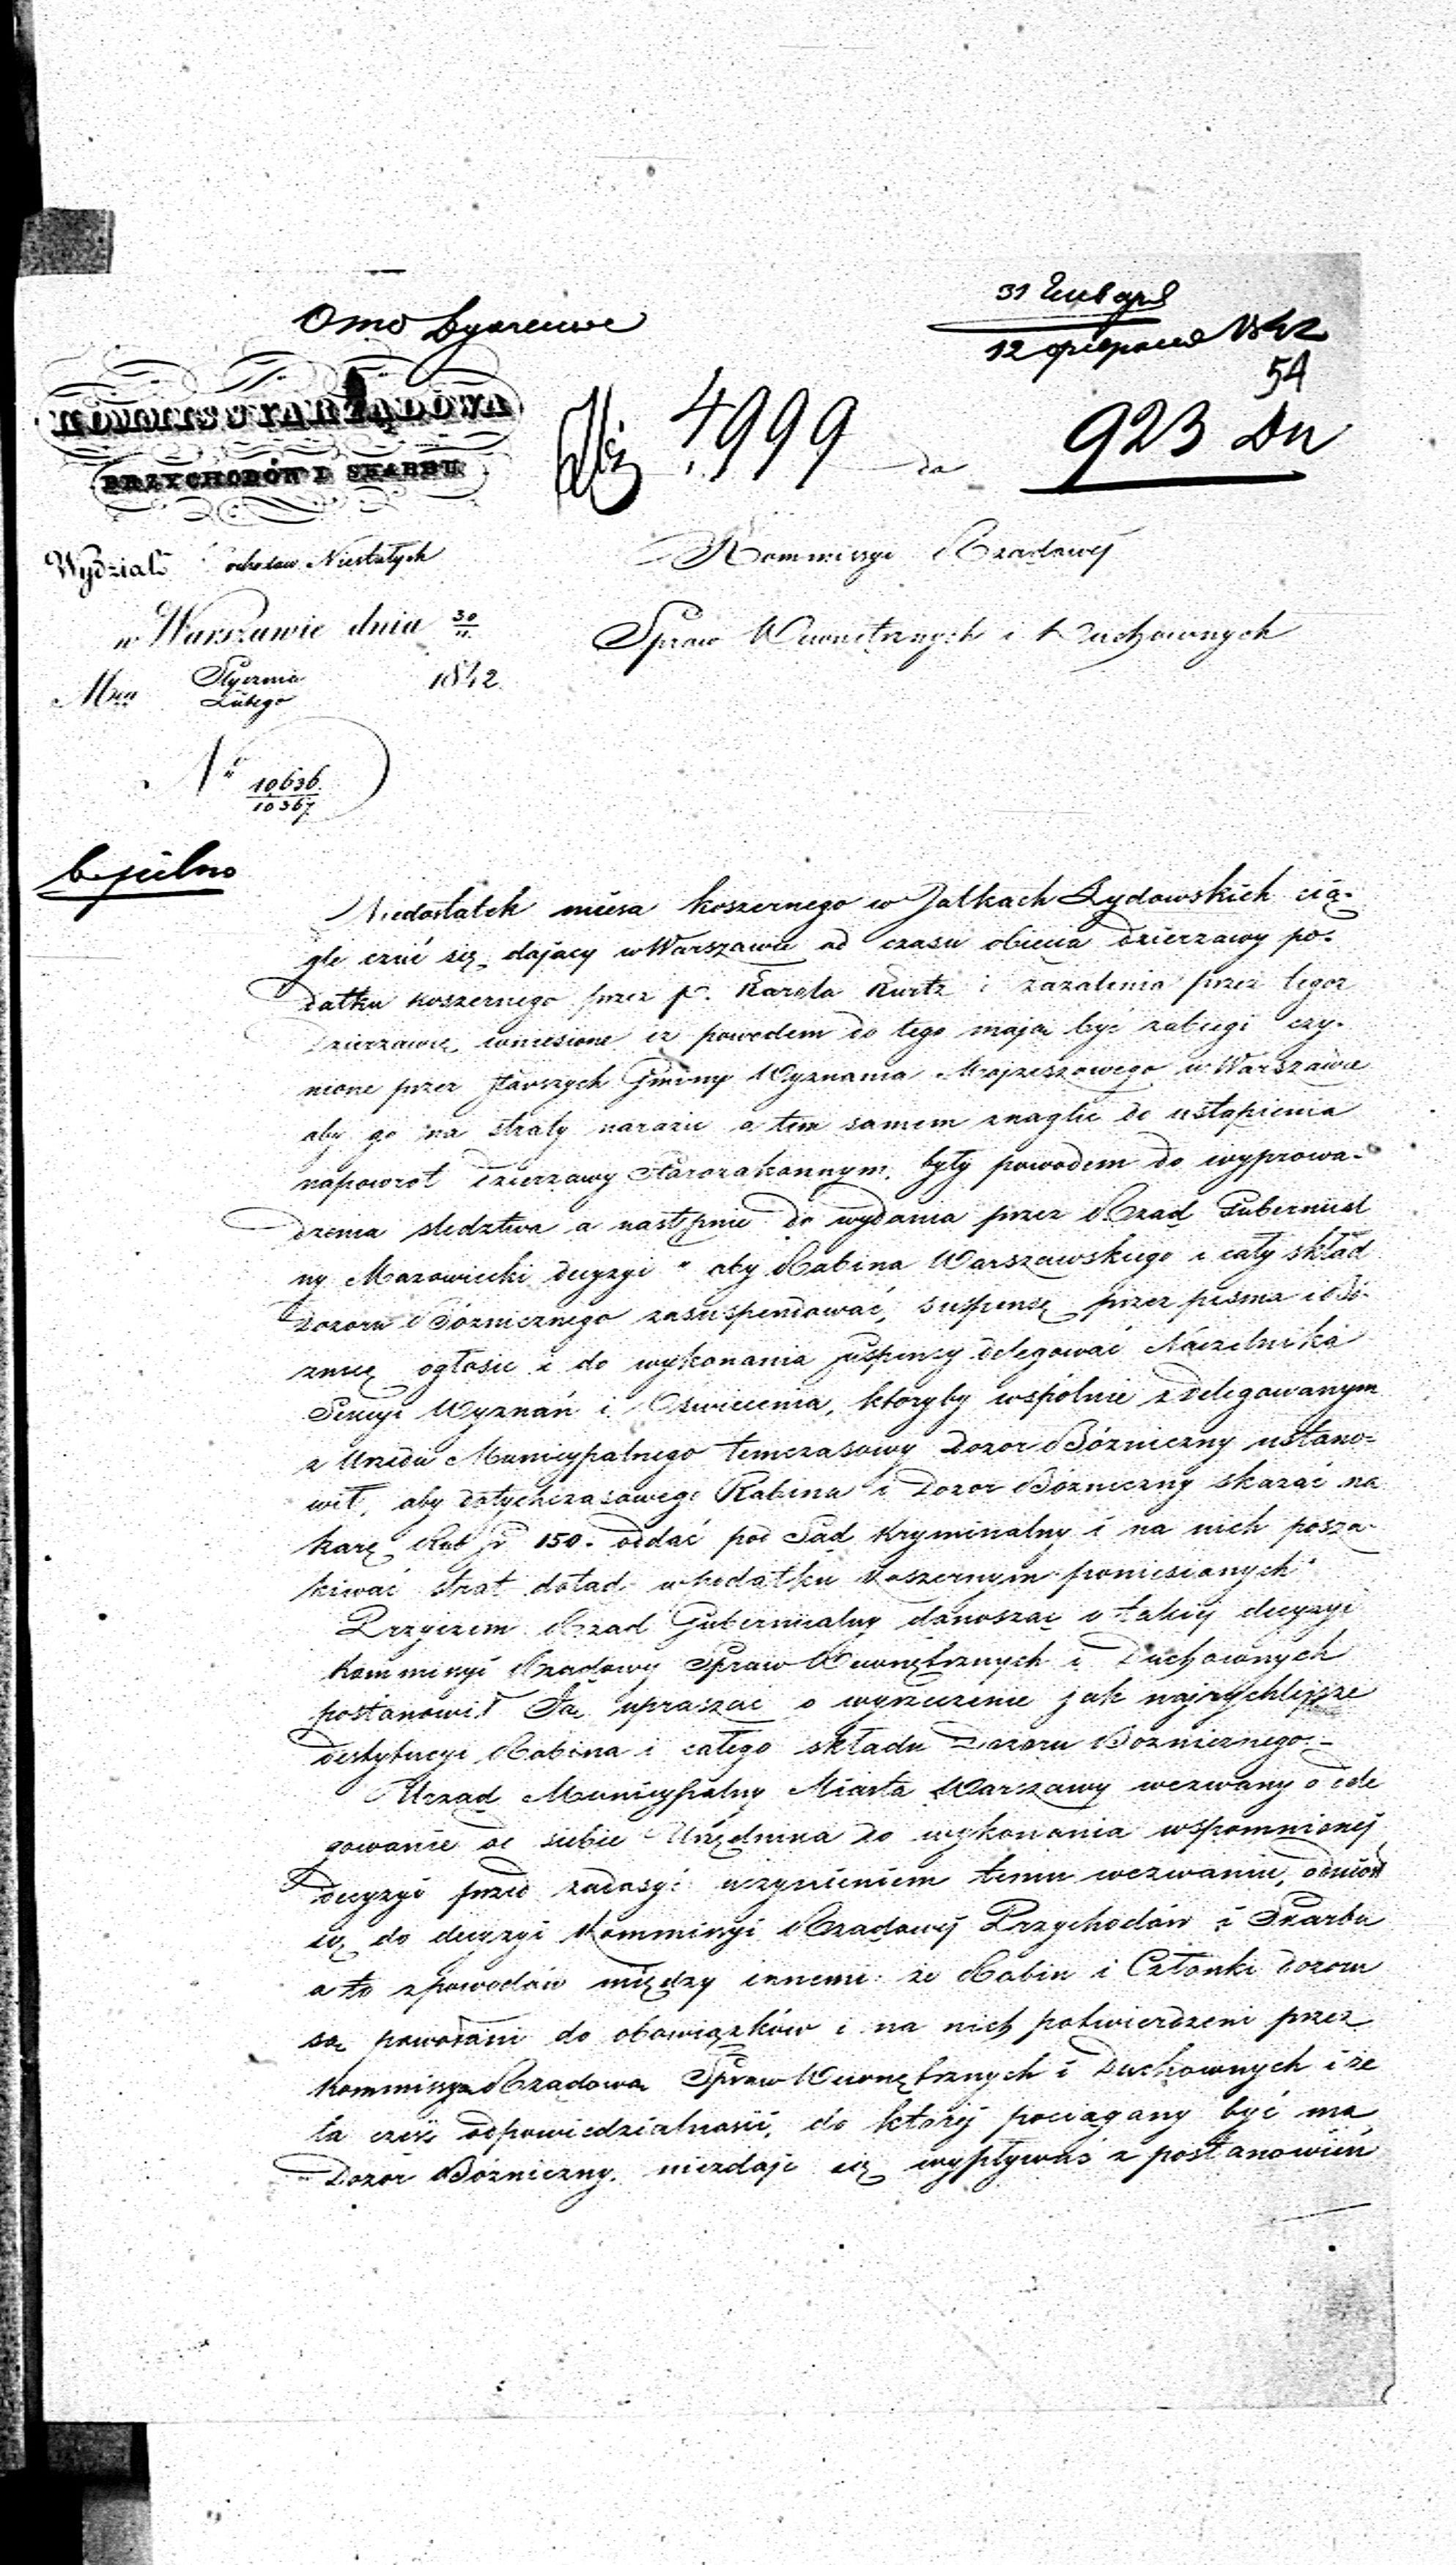 31 Января
12 февраля 1842
54
KOMMISSYA RZĄDOWA
PRZYCHODÓW I SKARBU
4999 do 923 Dn
Wydział Dochodów Niestałych
w Warszawie dnia 30/11
Mca Stycznia/Lutego 1842
N° 10636/10367
Kommissyi Rządowéj
Spraw Wewnętrznych i Duchownych
b. pilno
Niedostatek mięsa koszernego w Jatkach Żydowskich cią-
gle czuć się dający w Warszawie od czasu objęcia dzierzawy po-
datku koszernego przez p. Karola Kurtz i zażalenia przez tegoż
Dzierżawcę wniesione iż powodem do tego mają być zabiegi czy-
nione przez starszych Gminy Wyznania Mojżeszowego w Warszawie
aby go na straty narazić a tem samem znaglić do ustąpienia
napowrót dzierzawy Starozakonnym, były powodem do wyprowa-
dzenia śledztwa a następnie do wydania przez Rząd Gubernial
ny Mazowiecki decyzyi " aby Rabina Warszawskiego i cały skład
Dozoru Bóżniczego zasuspendować, suspensę przez pisma i Bó-
żnicę ogłosić i do wykonania suspensy delegować Naczelnika
Sekcyi Wyznań i Oświecenia, któryby wspólnie z delegowanym
z Urzędu Municypalnego temczasowy Dozór Bóżniczny ustano-
wił, aby dotychczasowego Rabina i Dozór Bóżniczny skazać na
karę Rub sr 150. oddać pod Sąd Kryminalny i na nich poszu-
kiwać strat dotąd w podatku koszernym poniesionych"
Przyczem Rząd Gubernialny donosząc o takiéj decyzyi
Kommissyi Rządowéj Spraw Wewnętrznych i Duchownych
postanowił Ją upraszać o wyrzeczenie jak najrychlejsze
destytucyi Rabina i całego składu Dozoru Bóżniczego.-
Urząd Municypalny Miasta Warszawy wezwany o dele
gowanie od siebie Urzędnika do wykonania wspomnionéj
decyzyi przed zadosyć uczynieniem temu wezwaniu, odniósł
się do decyzyi Kommissyi Rządowéj Przychodów i Skarbu
a to z powodów między innemi: że Rabin i Członki Dozoru
są powołani do obowiązków i na nich potwierdzeni przez
Kommissyą Rządową Spraw Wewnętrznych i Duchownych i że
ta cześć odpowiedzialności, do któréj pociągany być ma
Dozór Bóżniczny, niezdaje się wypływać z postanowień